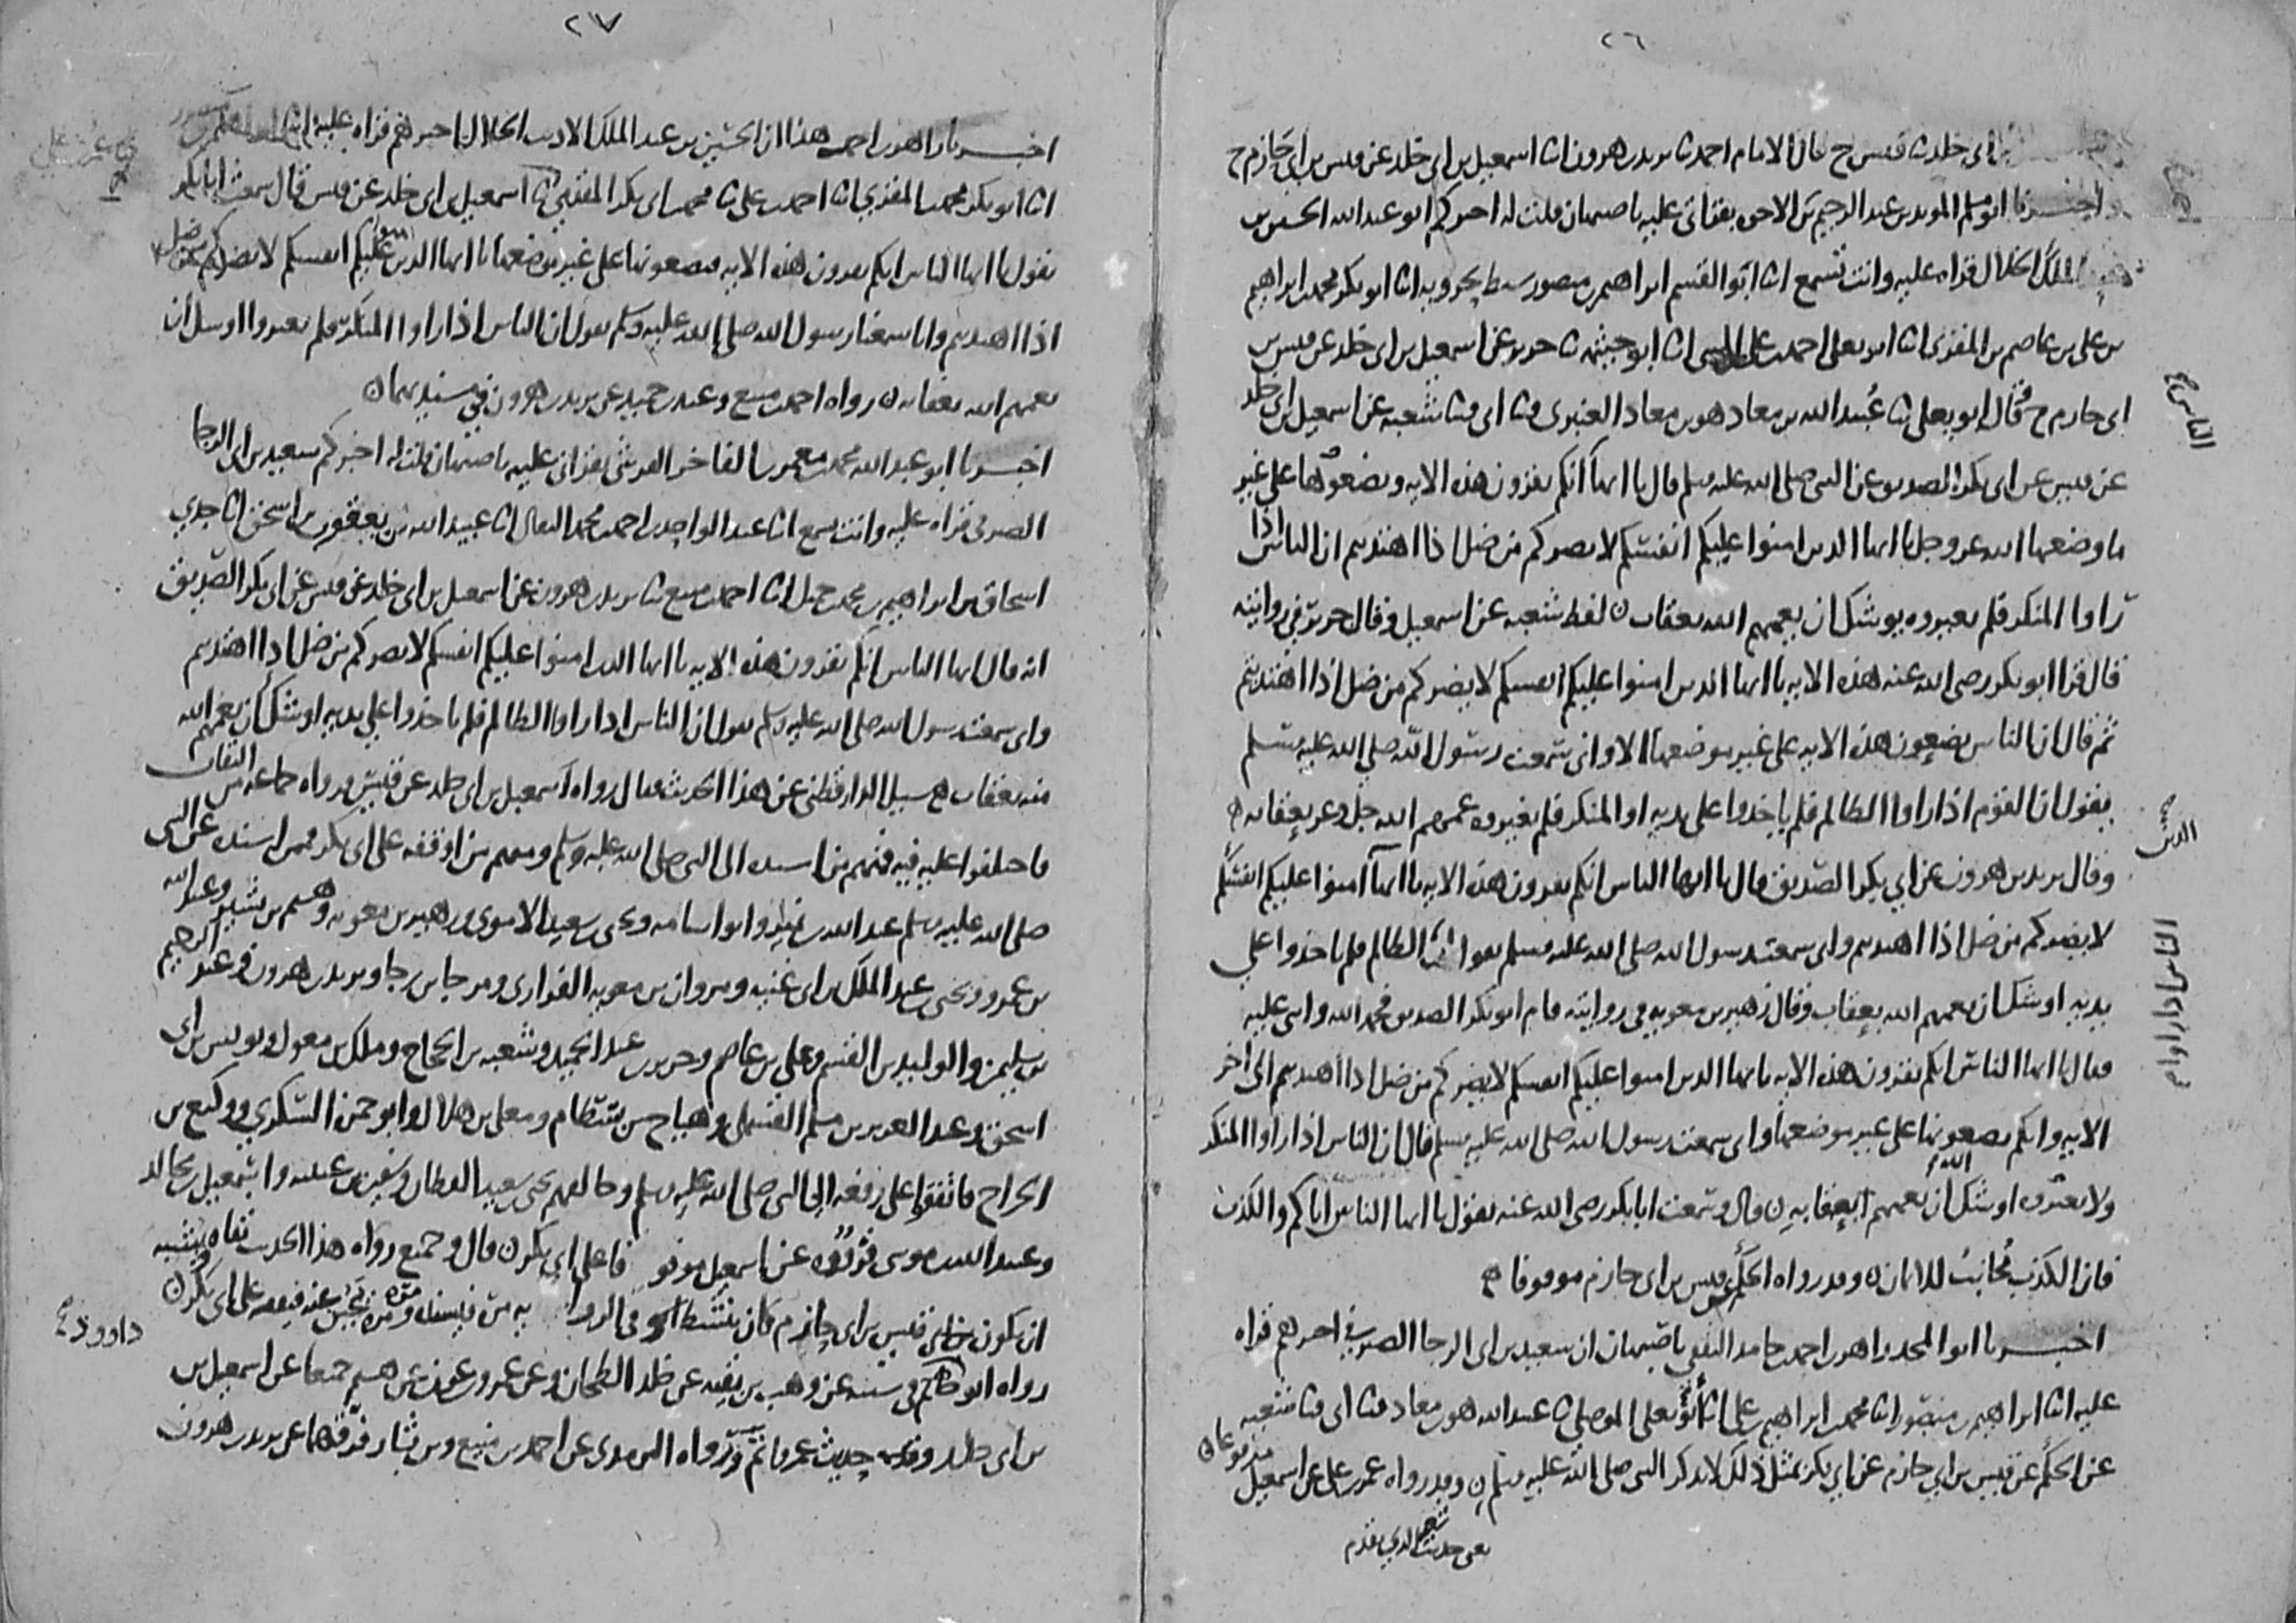 ٢٦
ابى خلد ثنا قيس ح قال الامام احمد ثنا يزيد بن هرون انا اسمعيل بن ابى خلد عن قيس بن ابى حازم ح
واخبرنا ابو مسلم المويد بن عبد الرحيم بن الاخوه بقراتى عليه باصبهان قلت له اخبركم ابو عبد الله الحسين بن
عبد الملك الخلال قراه عليه وانت تسمع انا ابو القسم ابراهيم بن منصور سبط بحرويه انا ابو بكر محمد بن ابراهيم
بن على بن عاصم بن المقرى انا ابو يعلى احمد بن على انا ابو خيثمه ثنا جرير عن اسمعيل بن ابى خلد عن قيس بن
ابى حازم ح وقال ابو يعلى ثنا عبيد الله بن معاذ هو بن معاذ العنبرى ثنا ابى ثنا شعبه عن اسمعيل بن ابى خلد
عن قيس عن ابى بكر الصديق عن النبى صلى الله عليه وسلم قال يا ايها انكم تقرون هذه الايه وتضعونها على غير
الناس
ما وضعها الله عز وجل يا ايها الذين امنوا عليكم انفسكم لا يضركم من ضل اذا اهتديتم ان الناس اذا
راوا المنكر فلم يغيروه يوشك ان يعمهم الله بعقاب لفظ شعبه عن اسمعيل وقال جرير فى روايته
قال قرا ابو بكر رضى الله عنه هذه الايه يا ايها الذين امنوا عليكم انفسكم لا يضركم من ضل اذا اهتديتم
ثم قال ان الناس يضعون هذه الايه على غير موضعها الا وانى سمعت رسول الله صلى الله عليه وسلم
يقول ان القوم اذا راوا الظالم فلم ياخذوا على يديه او المنكر فلم يغيروه عمهم الله جل وعز بعقابه ه
وقال يزيد بن هرون عن ابى بكر الصديق قال يا ايها الناس انكم تقرون هذه الايه يا ايها امنوا عليكم انفسكم
الذين
لا يضركم من ضل اذا اهتديتم وانى سمعت رسول الله صلى الله عليه وسلم يقول ان الظالم فلم ياخذوا على
الناس اذا راوا
يديه اوشك ان يعمهم الله بعقاب وقال زهير بن معويه فى روايته قام ابو بكر الصديق فحمد الله واثنى عليه
فقال يا ايها الناس انكم تقرون هذه الايه يا ايها الذين امنوا عليكم انفسكم لا يضركم من ضل اذا اهتديتم الى اخر
الايه وانكم تضعونها على غير موضعها وانى سمعت رسول الله صلى الله عليه وسلم قال ان الناس اذا راوا المنكر
ولا يغيروه اوشك ان يعمهم الله بعقابه ن قال وسمعت ابا بكر رضى الله عنه يقول يا ايها الناس اياكم والكذب
فان الكذب مجانب للايمان ن وقد رواه الحكم عن قيس بن ابى حازم موقوفا ه
اخبرنا ابو المجد زاهر بن احمد بن حامد الثقفى باصبهان ان سعيد بن ابى الرجا الصيرفى اخبرهم قراه
عليه انا ابراهيم بن منصور انا محمد بن ابراهيم بن على انا ابو يعلى الموصلى ثنا عبيد الله هو بن معاذ ثنا ابى ثنا شعبه
عن الحكم عن قيس بن ابى حازم عن ابى بكر بمثل ذلك لا يذكر النبى صلى الله عليه وسلم ن وقد رواه عمر بن على عن اسمعيل مرفوعا ن
يعنى حديث شعبه الذي تقدم
٢٧
اخبرنا زاهر بن احمد هذا ان الحسين بن عبد الملك الاديب الخلال اخبرهم قراه عليه انا ابراهيم بن منصور
انا ابو بكر محمد بن المقرى انا احمد بن على ثنا محمد بن ابى بكر المقدمى ثنا اسمعيل بن ابى خلد عن قيس قال سمعت ابا بكر
عمر بن على
يقول يا ايها الناس انكم تقرون هذه الايه فتضعونها على غير موضعها يا ايها الذين امنوا عليكم انفسكم لا يضركم من ضل
اذا اهتديتم وانا سمعنا رسول الله صلى الله عليه وسلم يقول ان الناس اذا راوا المنكر فلم يغيروا اوشك ان
يعمهم الله بعقابه ن رواه احمد بن منيع وعبد بن حميد عن يزيد بن هرون فى مسنديهما ن
اخبرنا ابو عبد الله محمد بن معمر بن الفاخر القرشى بقراتى عليه باصبهان قلت له اخبركم سعيد بن ابى الرجا
الصيرفى قراه عليه وانت تسمع انا عبد الواحد بن احمد بن محمد البقال انا عبيد الله بن يعقوب بن اسحق انا جدى
اسحاق بن ابراهيم بن محمد بن جميل انا احمد بن منيع ثنا يزيد بن هرون عن اسمعيل بن ابى خلد عن قيس عن ابى بكر الصديق
انه قال ايها الناس انكم تقرون هذه الايه يا ايها الذين امنوا عليكم انفسكم لا يضركم من ضل اذا اهتديتم
وانى سمعت رسول الله صلى الله عليه وسلم يقول ان الناس اذا راوا الظالم فلم ياخذوا على يديه اوشك ان يعمهم الله
منه بعقاب ه سيل الدارقطنى عن هذا الحديث فقال رواه اسمعيل بن ابى خلد عن قيس ورواه جماعه من الثقات
فاختلفوا عليه فيه فمنهم من اسنده الى النبى صلى الله عليه وسلم ومنهم من اوقفه على ابى بكر فممن اسنده عن النبى
صلى الله عليه وسلم عبد الله بن نمير وابو اسامه ويحيى بن سعيد الاموى وزهير بن معويه وهشيم بن بشير وعبيد الله
بن عمرو ويحيى بن عبد الملك بن ابى غنيه ومروان بن معويه الفزارى ومرجا بن رجا ويزيد بن هرون وعبد الرحيم
بن سليمن والوليد بن القسم وعلى بن عاصم وجرير بن عبد الحميد وشعبه بن الحجاج وملك بن مغول ويونس بن ابى
اسحق وعبد العزيز بن مسلم القسملى وهياج بن بسطام ومعلى بن هلال وابو حمزه السكرى ووكيع بن
الجراح فاتفقوا على رفعه الى النبى صلى الله عليه وسلم وخالفهم يحيى بن سعيد القطان وسفين بن عيينه واسمعيل بن مجالد
وعبيد الله بن موسى فرووه عن اسمعيل موقوفا على ابى بكر ن قال وجميع رواه هذا الحديث ثقات ويشبه
ان يكون قيس بن ابى حازم كان ينشط فى الروايه مره فيسنده ومره يجبن عنه فيقفه على ابى بكر ن
رواه ابو داوود فى سننه عن وهب بن بقيه عن خلد الطحان وعن عمرو بن عون عن هشيم جميعا عن اسمعيل بن
بن ابى خلد وفيه حديث عمرو اتم ورواه الترمذى عن احمد بن منيع وبن بشار فرقهما عن يزيد بن هرون